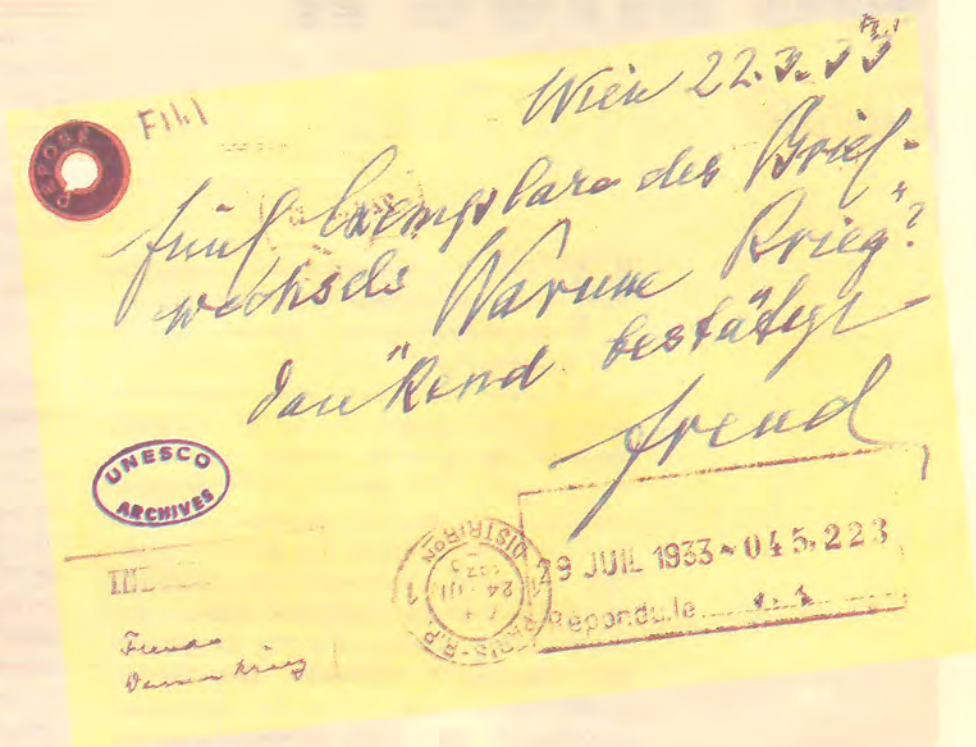 Wien 22.7.33
F1h1
fünf Exemplare des Brief-
wechsels "Warum Krieg"?
dankend bestätigt
Freud
UNESCO
ARCHIVES
29 JUIL 1933 ~ 045,223
Répondu le
DISTRIBON
PARIS-R.P.
24 VII
1933
Freud
Warum Krieg